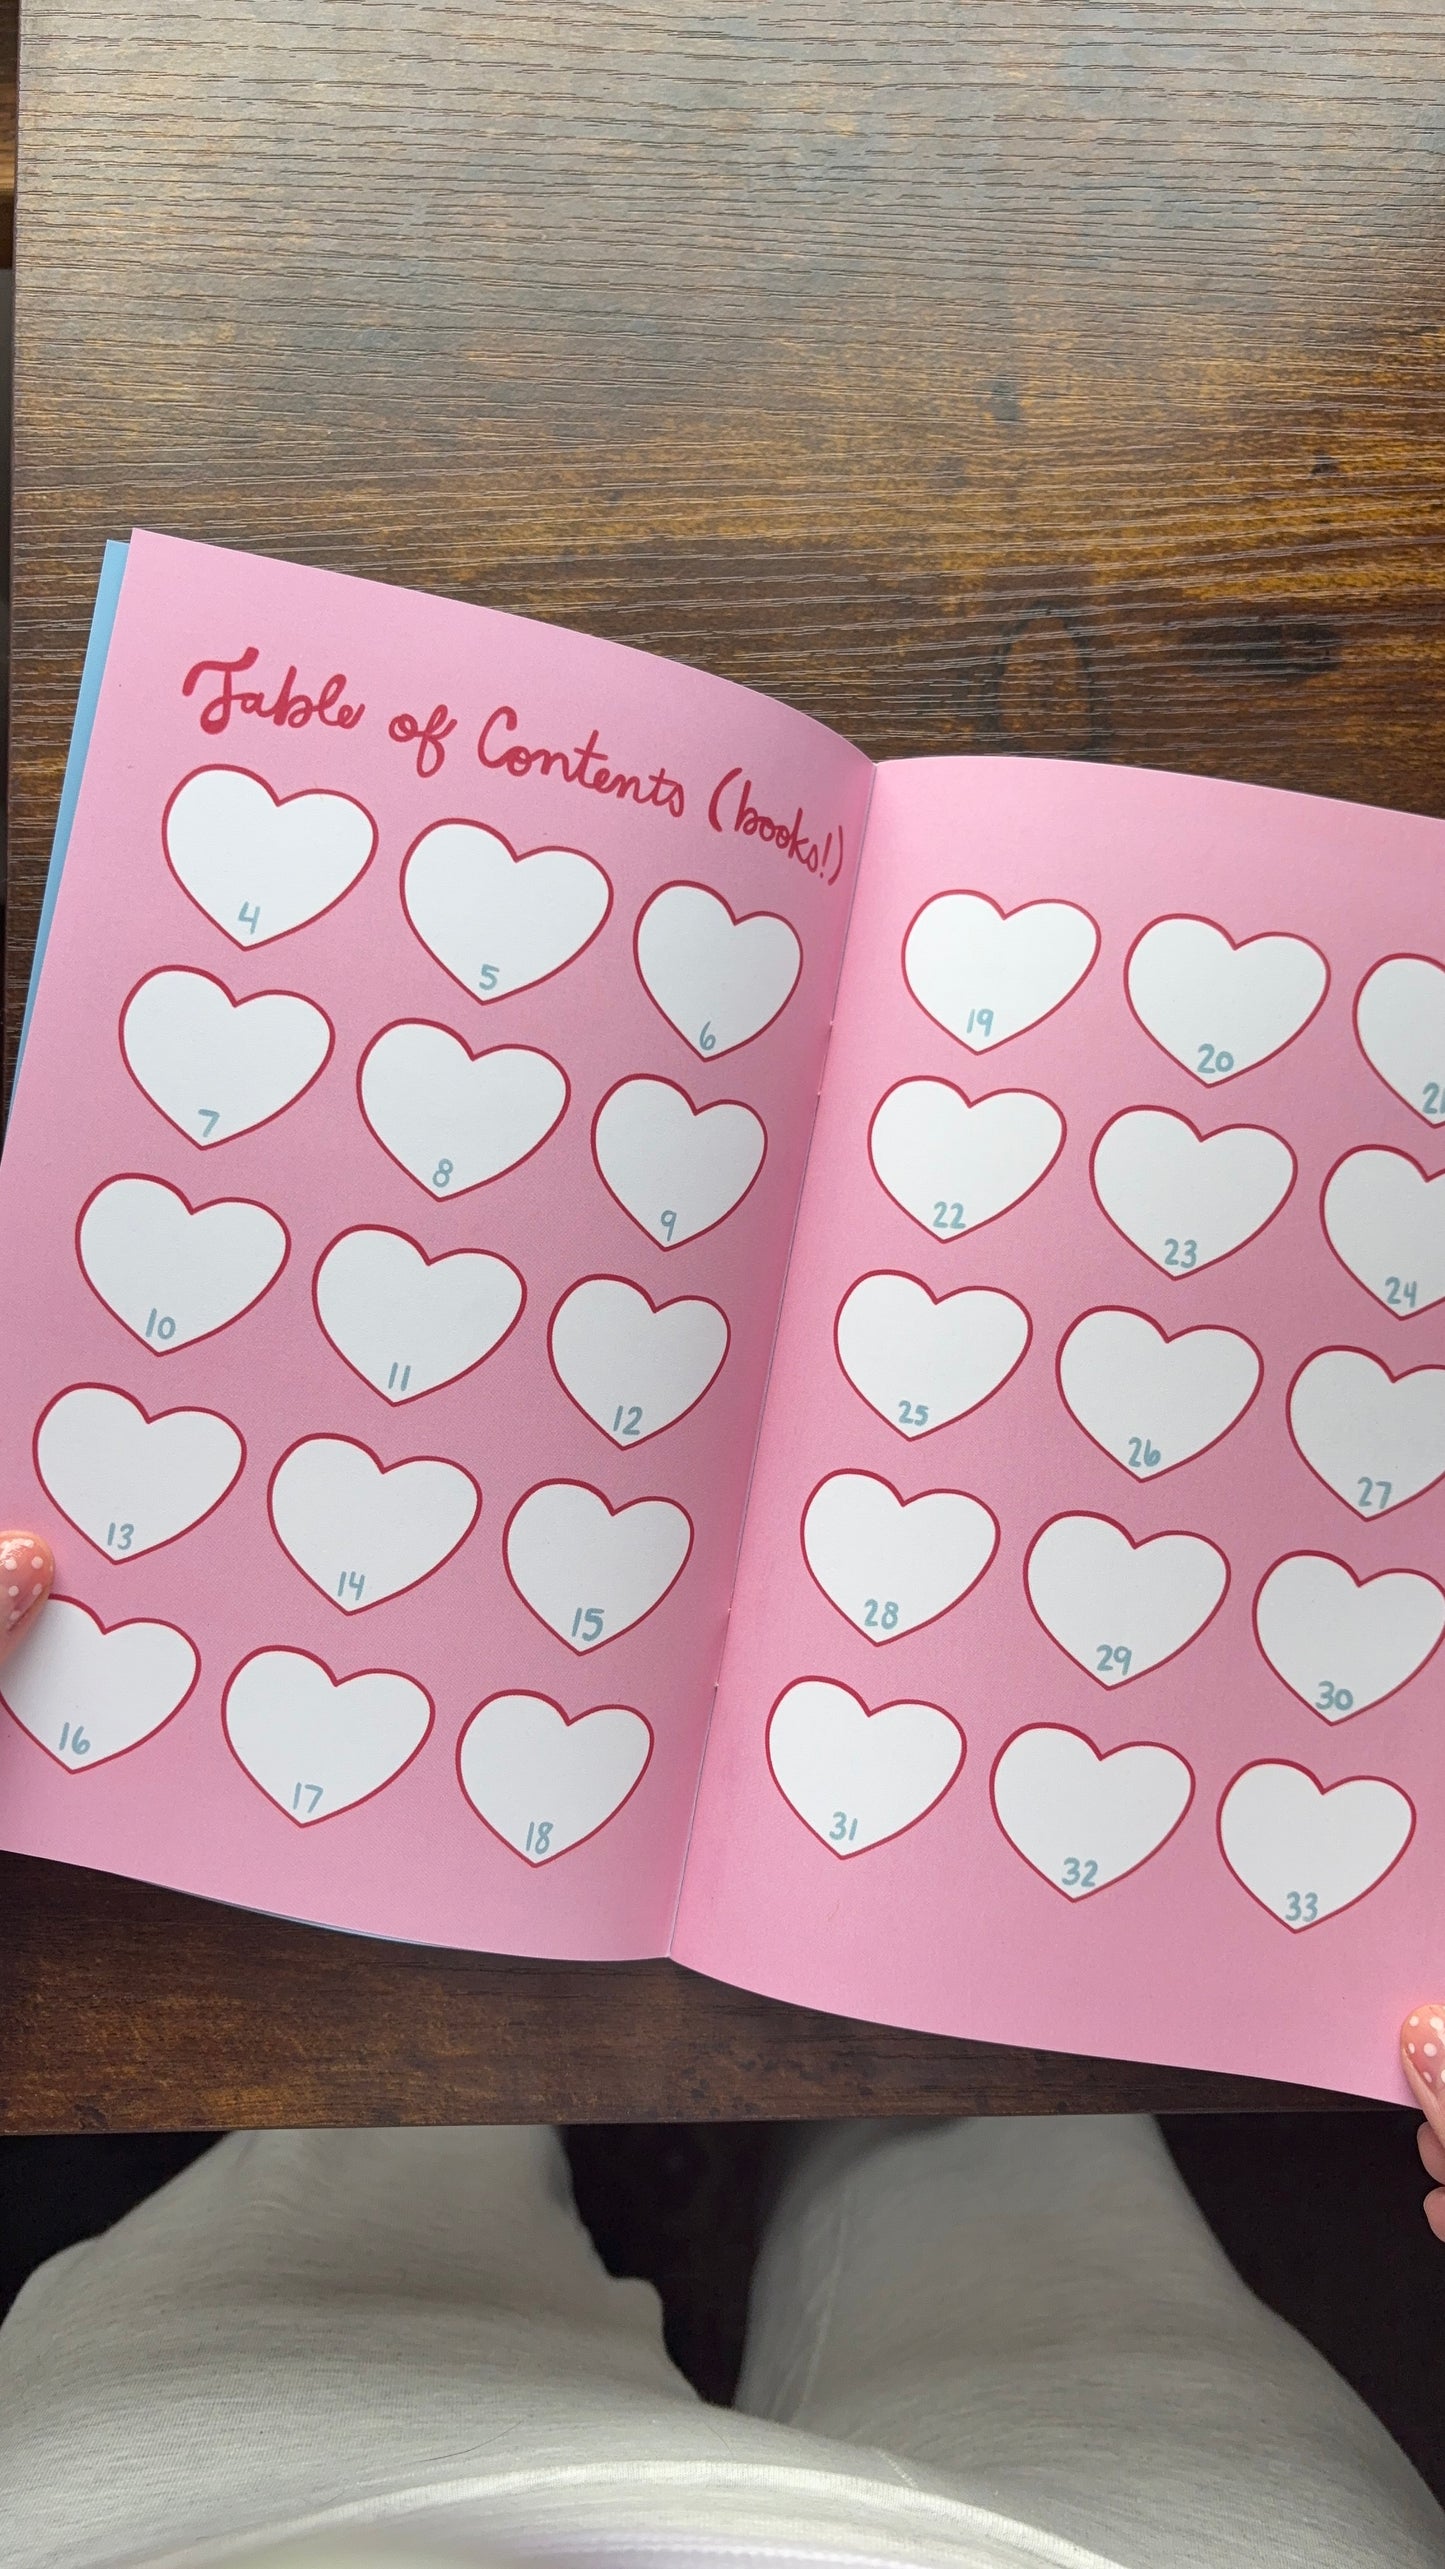 Table of Contents (books!)
4 5 6
7 8 9
10 11 12
13 14 15
16 17 18
19 20 21
22 23 24
25 26 27
28 29 30
31 32 33